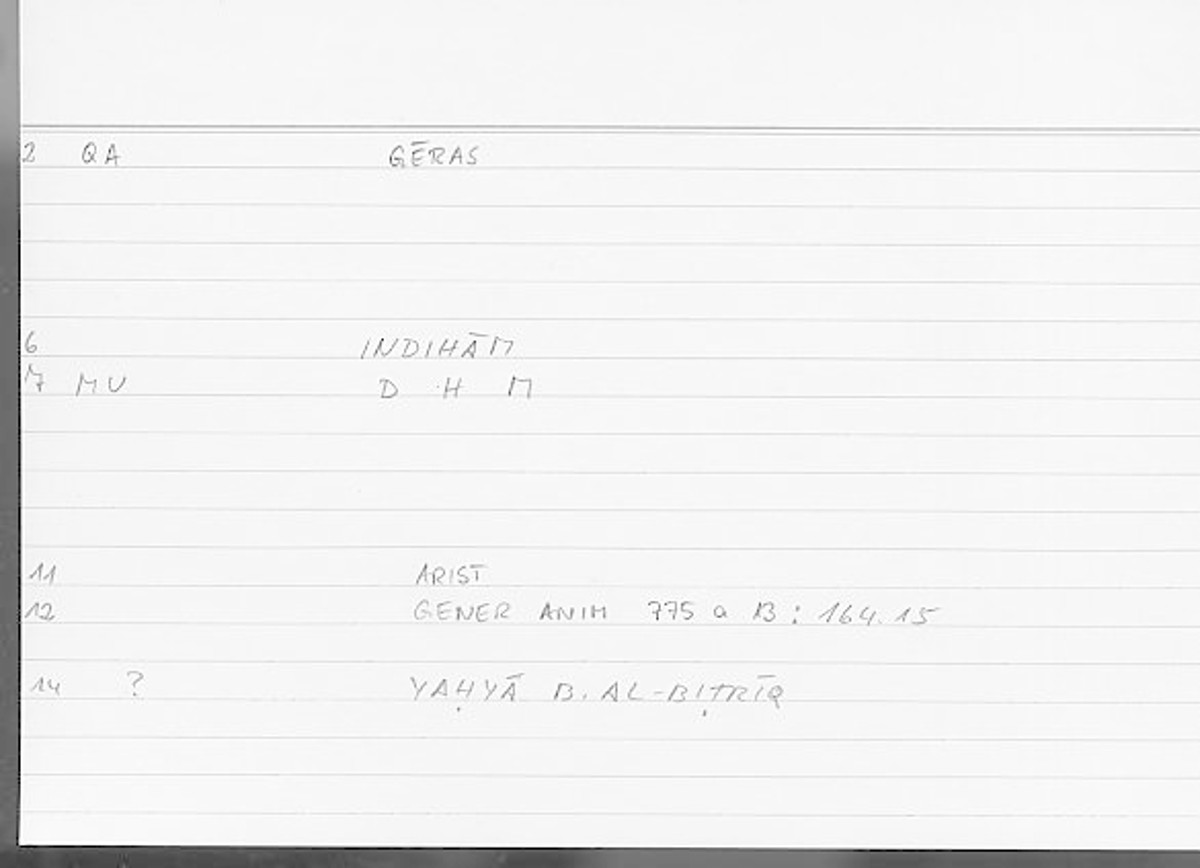 2 QA GĒRAS
6 INDIHĀM
7 MU D H M
11 ARIST
12 GENER ANIM 775 a 13 : 164.15
14 ? YAḤYĀ B. AL-BIṬRĪQ